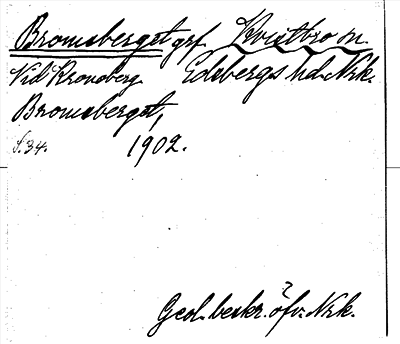 Bromsberget grf. Kvistbro sn.
Vid Kronoberg Edsbergs hd. Nrk.
Bromsberget,
s. 34. 1902.
?
Geol. beskr. öfv. Nrk.